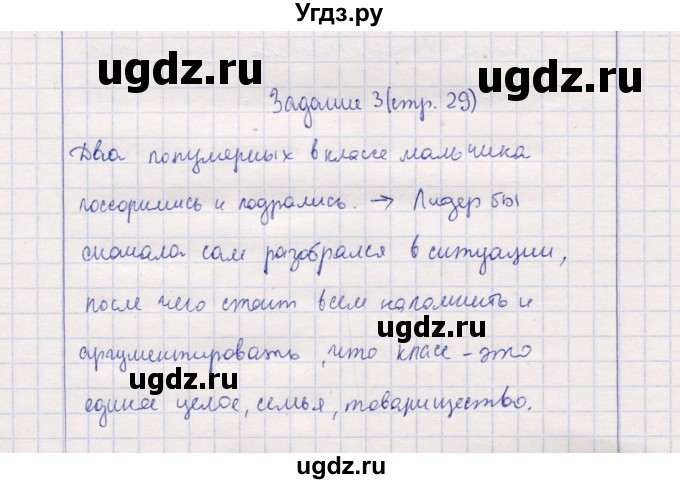 Угдз.ру
ugdz.ru ugdz.ru
Задание 3(стр. 29)
Два популярных в классе мальчика
поссорились и подрались. → Лидер бы
ugdz.ru ugdz.ru
сначала сам разобрался в ситуации,
после чего стоит всем напомнить и
ugdz.ru
аргументировать, что класс – это
ugdz.ru
единое целое, семья, товарищество.
ugdz.ru